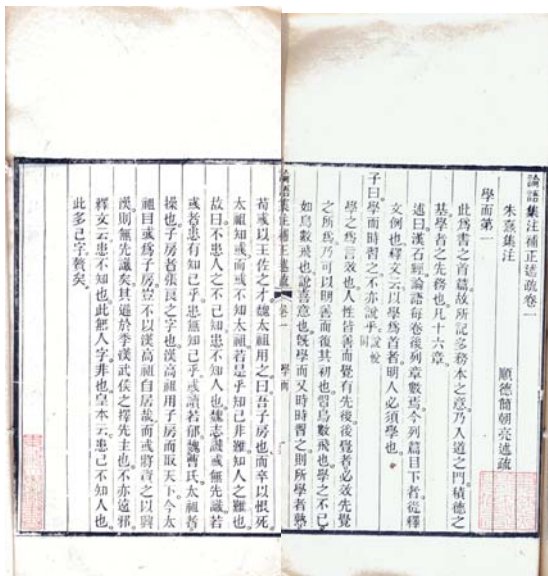 論語集注補正述疏卷一
朱熹集注
順德簡朝亮述疏
學而第一
此為書之首篇故所記多務本之意乃入道之門積德之
基學者之先務也凡十六章
述曰漢石經論語每卷後列章數焉今列篇目下者從釋
文例也釋文云以學為首者明人必須學也
子曰學而時習之不亦說乎
說悅同
學之為言效也人性皆善而覺有先後後覺者必效先覺
之所為乃可以明善而復其初也習鳥數飛也學之不已
如鳥數飛也說喜意也既學而又時時習之則所學者熟
論語集注補正述疏
卷一
學而
荀彧以王佐之才魏太祖用之曰吾子房也而卒以恨死
太祖知彧而彧不知太祖若是乎知己非難知人之難也
故曰不患人之不己知患不知人也魏志譏彧無先識若
彧者患有知己乎患無知己乎或讀若郁魏曹氏太祖者
操也子房者張良之字也漢高祖用子房而取天下今太
祖目彧為子房豈不以漢高祖自居哉而彧將責之以興
漢則無先識矣其遜於季漢武侯之擇先主也不亦遠邪
釋文云患不知也此無人字非也皇本云患己不知人也
此多己字贅矣